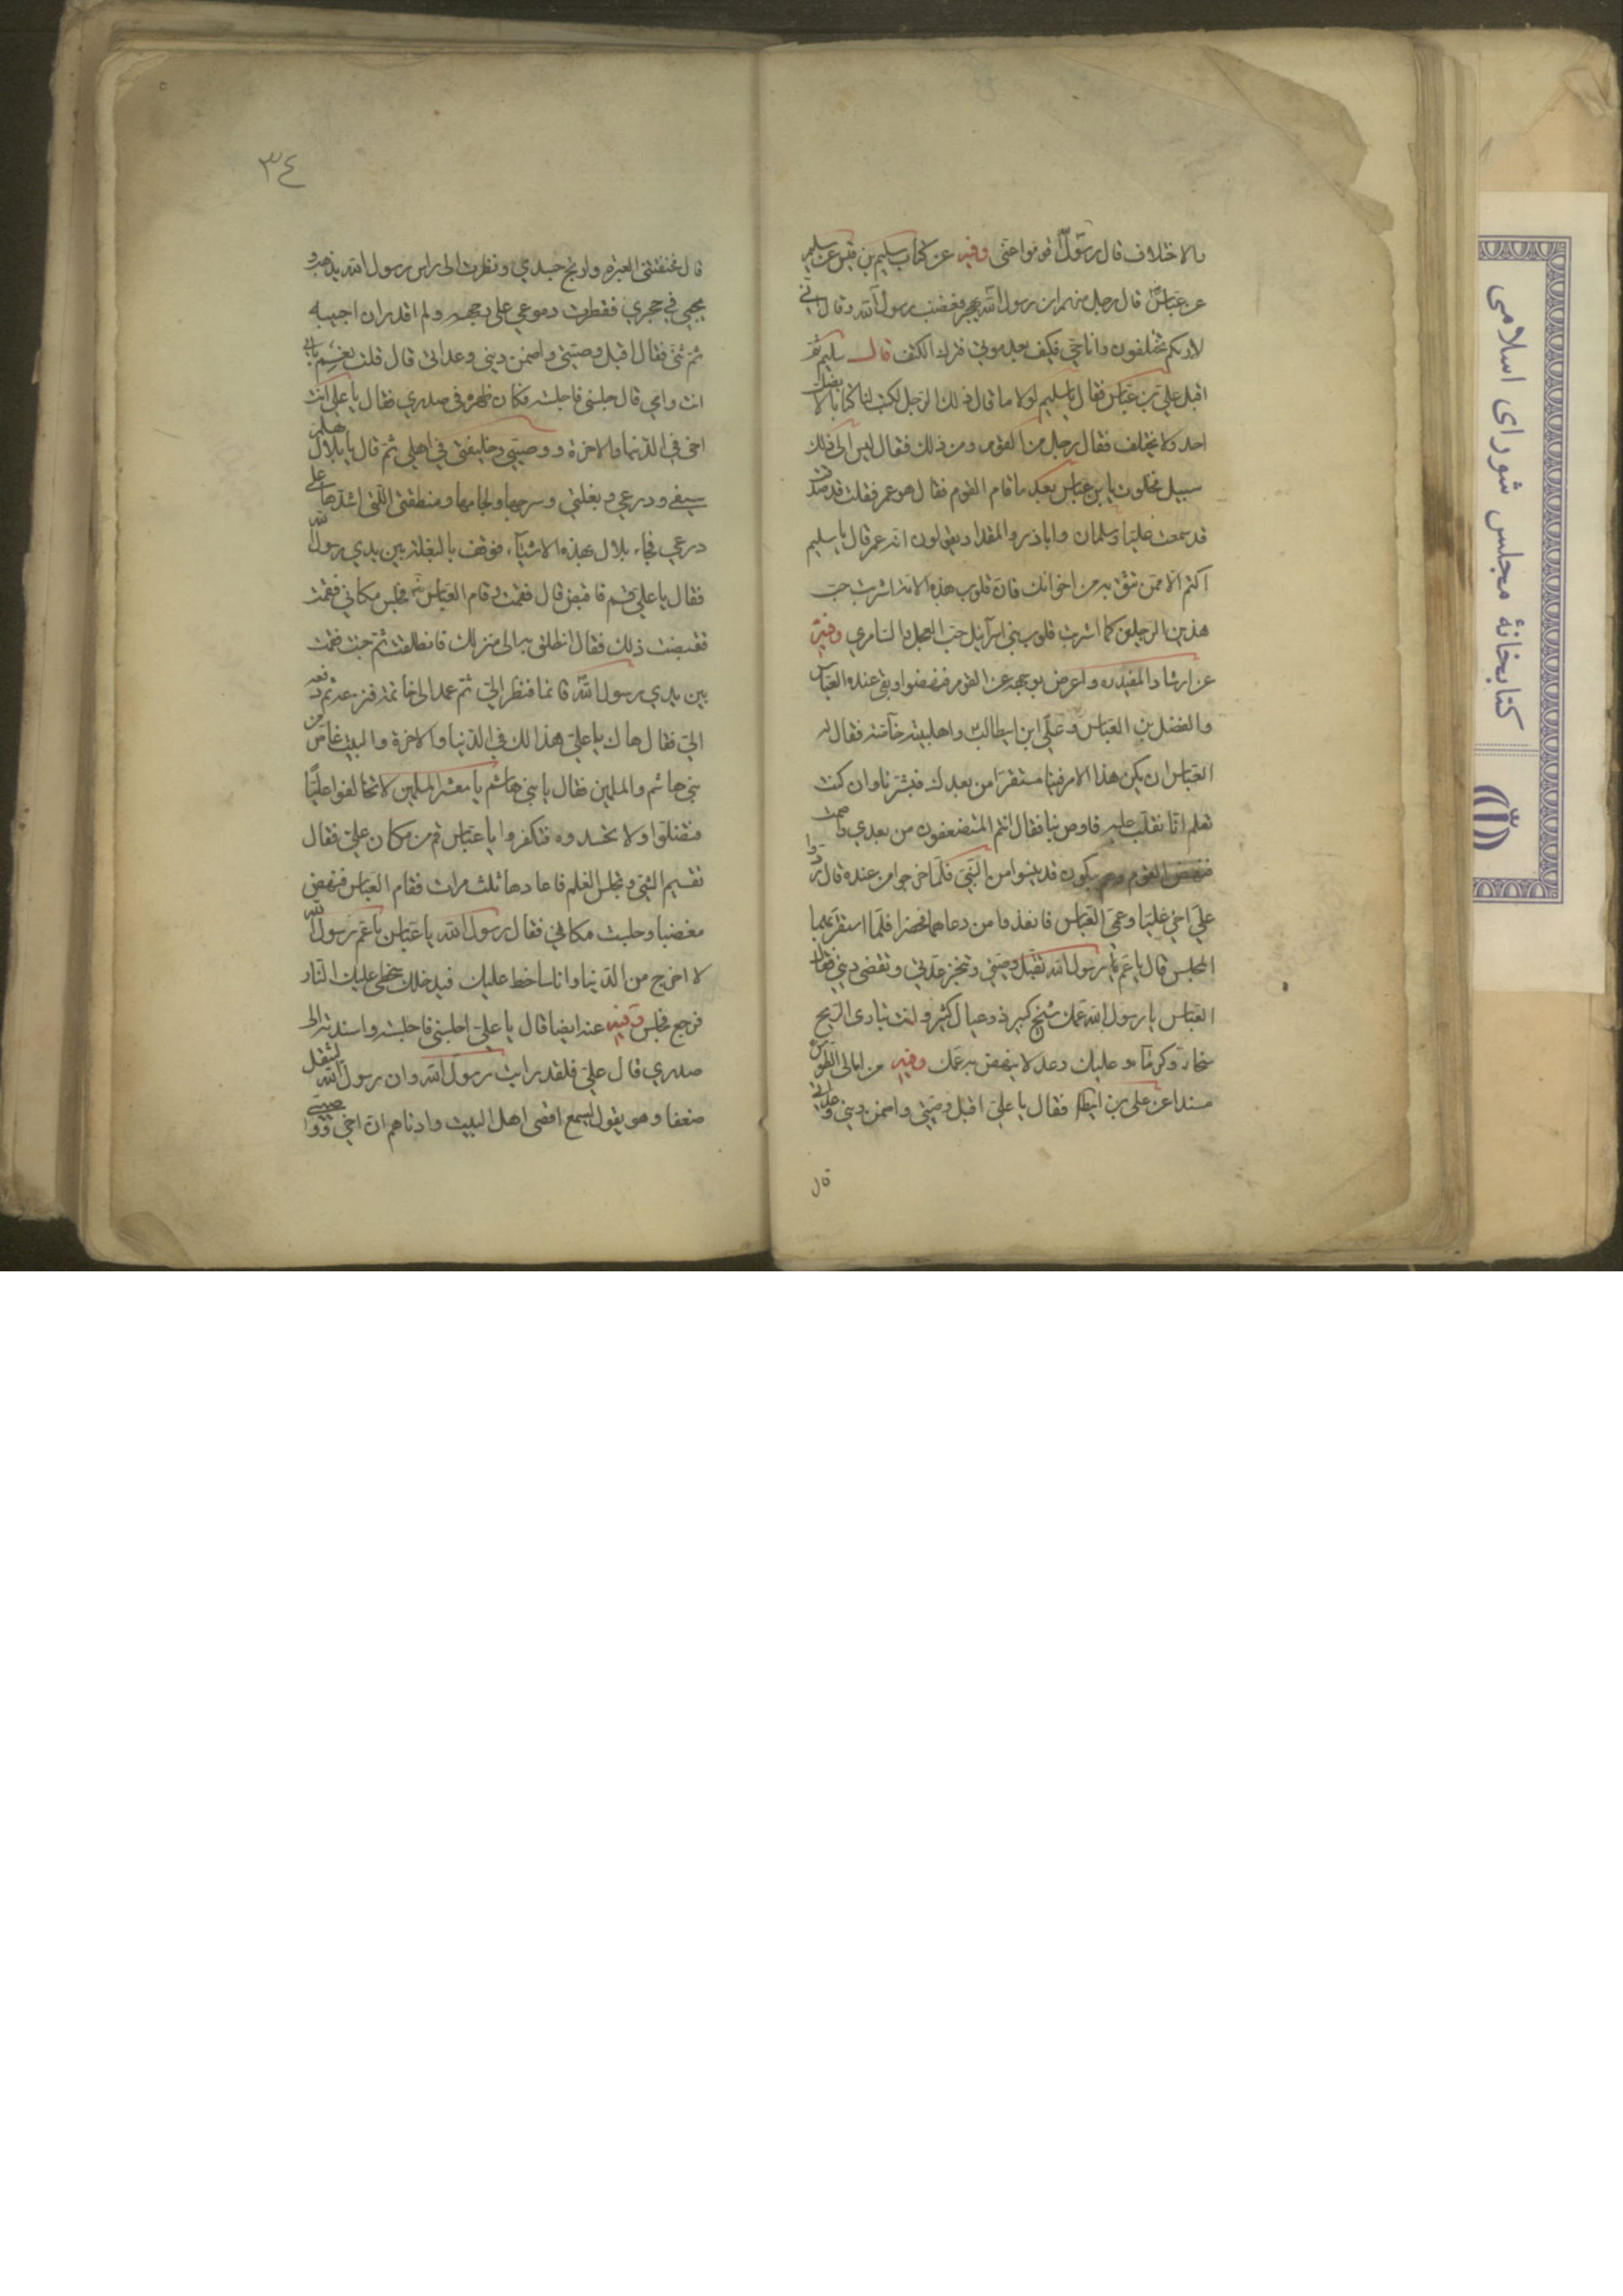 بالاختلاف قال رسول الله قوموا عني وفيه عن كتاب سليم بن قيس عن سليم
عن عباس قال رجل منهم ان رسول الله يهجر فغضب رسول الله وقال اني
لاريكم تختلفون وانا حي فكيف بعد موتي فترك الكتف قال سليم ثم
اقبل علي بن عباس فقال يا سليم لولا ما قال ذلك الرجل لكتب لنا كتابا لا يضل
احد ولا يختلف فقال رجل من القوم ومن ذلك فقال ليس الى ذلك
سبيل فخلوت يا بن عباس بعد ما قام القوم فقال هو عمر فقلت قد صدقت
قد سمعت عليا وسلمان واباذر والمقداد يقولون انه عمر قال يا سليم
اكتم الا ممن تثق به من اخوانك فان قلوب هذه الامة اشربت حب
هذين الرجلين كما اشربت قلوب بني اسرائيل حب العجل والسامري وفيه
عن ارشاد المفيد ره واعرض بوجهه عن القوم فنهضوا وبقي عنده العباس
والفضل بن العباس وعلي ابن ابيطالب واهلبيته خاصة فقال له
العباس ان يكن هذا الامر فينا مستقرا من بعدك فبشرنا وان كنت
تعلم انا نغلب عليه فاوص بنا فقال انتم المستضعفون من بعدي واصمت
فنهض القوم وهم يبكون قد يئسوا من النبي فلما خرجوا من عنده قال ردوا
علي اخي عليا وعمي العباس فانفذوا من دعاهما فحضرا فلما استقر بهما
المجلس قال يا عم يا رسول الله تقبل وصيتي وتنجز عدتي وتقضي ديني فقال
العباس يا رسول الله عمك شيخ كبير ذو عيال كثير وانت تبادي الريح
سخاء وكرما و عليك وعد لا ينهض به عمك وفيه من امالي الطوسي
مسندا عن علي بن ابيطالب فقال يا علي اقبل وصيتي واضمن ديني وعداتي
قال
٣٤
قال فخنقتني العبرة وارتج جسدي ونظرت الى راس رسول الله يذهب و
يجيئ في حجري فقطرت دموعي على وجهه ولم اقدر ان اجيبه
ثم ثنى فقال اقبل وصيتي واضمن ديني وعداتي قال قلت نعم بابي
انت وامي قال اجلسني فاجلسته فكان ظهره في صدري فقال يا علي انت
اخي في الدنيا والاخرة ووصيتي وخليفتي في اهلي ثم قال يا بلال هلم
سيفي ودرعي وبغلتي وسرجها ولجامها ومنطقتي اللتي اشدها على
درعي فجاء بلال بهذه الاشياء فوقف بالبغلة بين يدي رسول الله
فقال يا علي قم فاقبض قال فقمت وقام العباس فجلس مكاني فقمت
فقبضت ذلك فقال انطلق به الى منزلك فانطلقت ثم جئت فقمت
بين يدي رسول الله قائما فنظر الي ثم عمد الى خاتمه فنزعه ثم دفعه
الي فقال هاك يا علي هذا لك في الدنيا والاخرة والبيت غاص من
بني هاشم والمسلمين فقال يا بني هاشم يا معشر المسلمين لا تخالفوا عليا
فتضلوا ولا تحسدوه فتكفروا يا عباس قم من مكان علي فقال
تقيم الشيخ وتجلس الغلام فاعادها ثلث مرات فقام العباس فنهض
مغضبا وجلست مكاني فقال رسول الله يا عباس يا عم رسول الله
لا اخرج من الدنيا وانا ساخط عليك فيدخلك سخطي عليك النار
فرجع فجلس وفيه عنه ايضا قال يا علي اجلسني فاجلسته واسندته الى
صدري قال علي فلقد رايت رسول الله وان رسول الله ليثقل
ضعفا وهو يقول ليسمع اقصى اهل البيت وادناهم ان اخي ووصيي
كتابخانهٔ مجلس شورای اسلامی